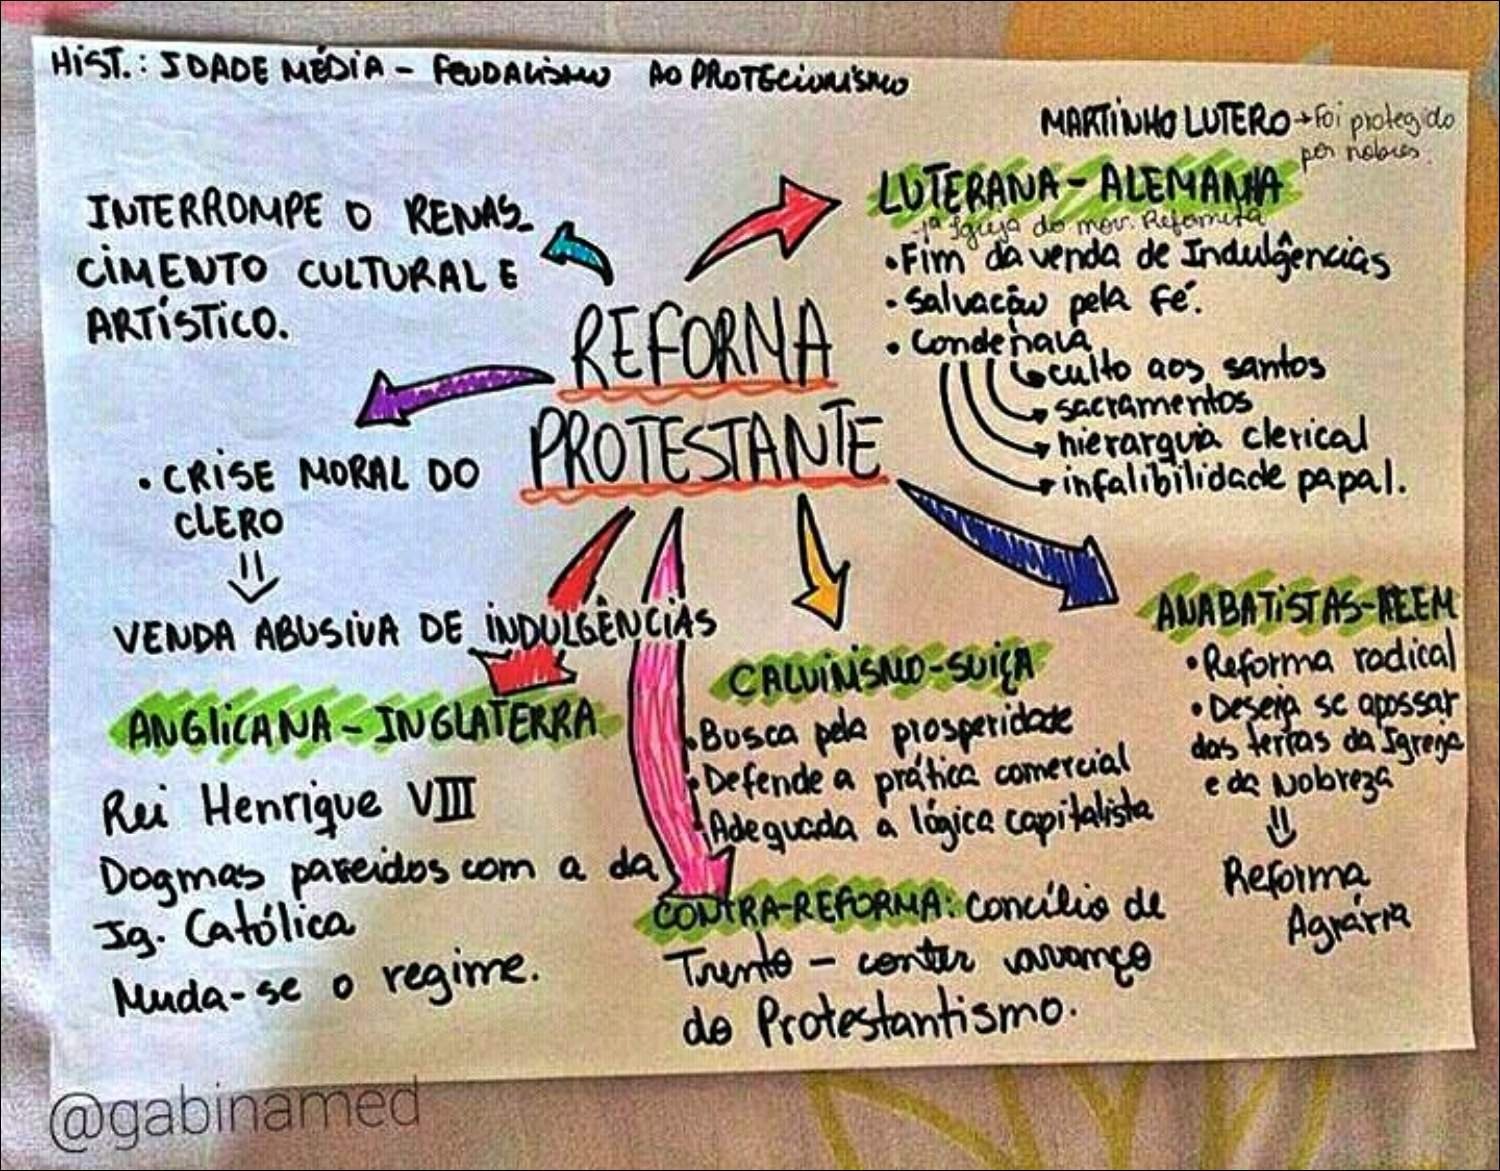 HIST.: IDADE MÉDIA - FEUDALISMO AO PROTECIONISMO
MARTINHO LUTERO → Foi protegido
por nobres.
INTERROMPE O RENAS-
CIMENTO CULTURAL E
ARTÍSTICO.
REFORMA
PROTESTANTE
LUTERANA - ALEMANHA
-1ª Igreja do mov. Reformista
• Fim da venda de Indulgências
• Salvação pela Fé.
• Condenava
culto aos santos
sacramentos
hierarquia clerical
infalibilidade papal.
• CRISE MORAL DO
CLERO
VENDA ABUSIVA DE INDULGÊNCIAS
ANGLICANA - INGLATERRA
Rei Henrique VIII
Dogmas pareidos com a da
Ig. Católica
Muda-se o regime.
CALVINISMO - SUIÇA
• Busca pela prosperidade
• Defende a prática comercial
• Adequada a lógica capitalista
CONTRA-REFORMA: Concílio de
Trento - conter avanço
do Protestantismo.
ANABATISTAS-ALEM
• Reforma radical
• Deseja se apossar
das terras da Igreja
e da Nobreza
Reforma
Agrária
@gabinamed